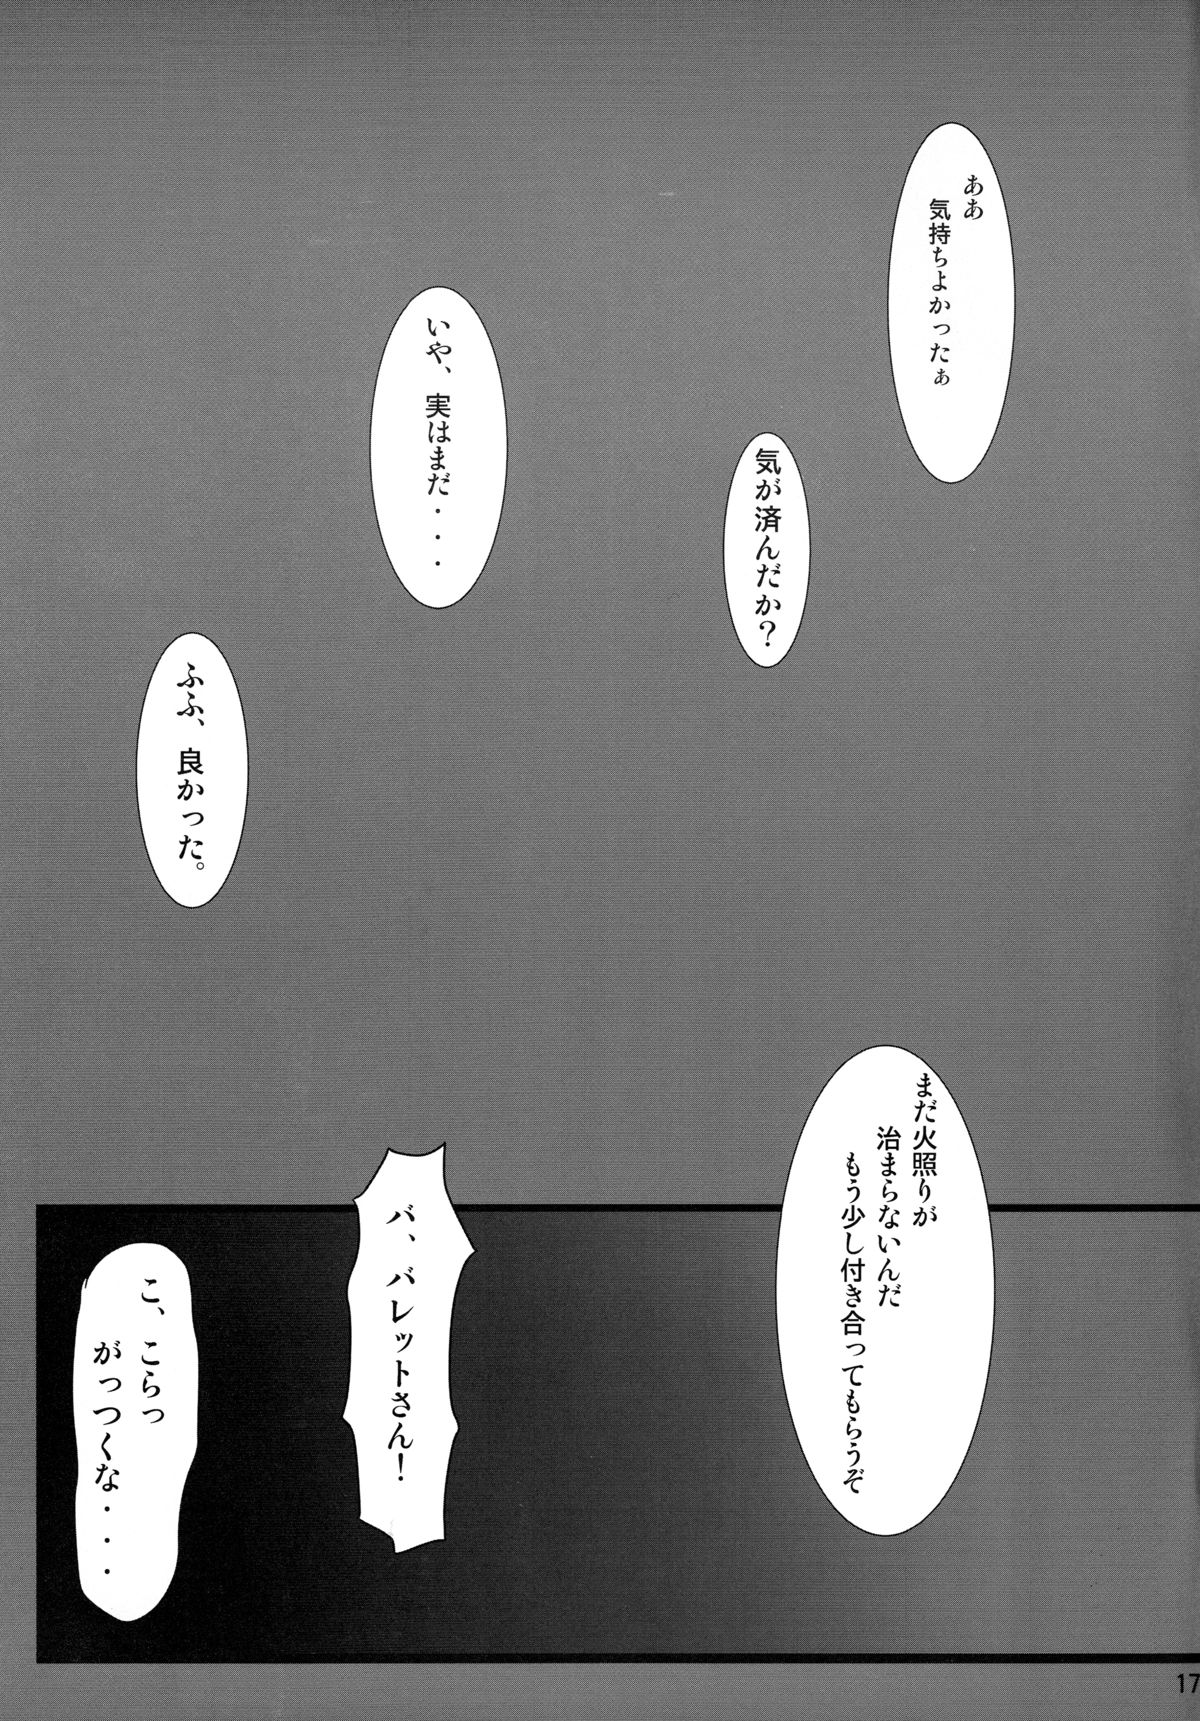 ああ
気持ちよかったぁ
気が済んだか？
いや、実はまだ・・・
ふふ、良かった。
まだ火照りが
治まらないんだ
もう少し付き合ってもらうぞ
バ、バレットさん！
こ、こらっ
がっつくな・・・
17